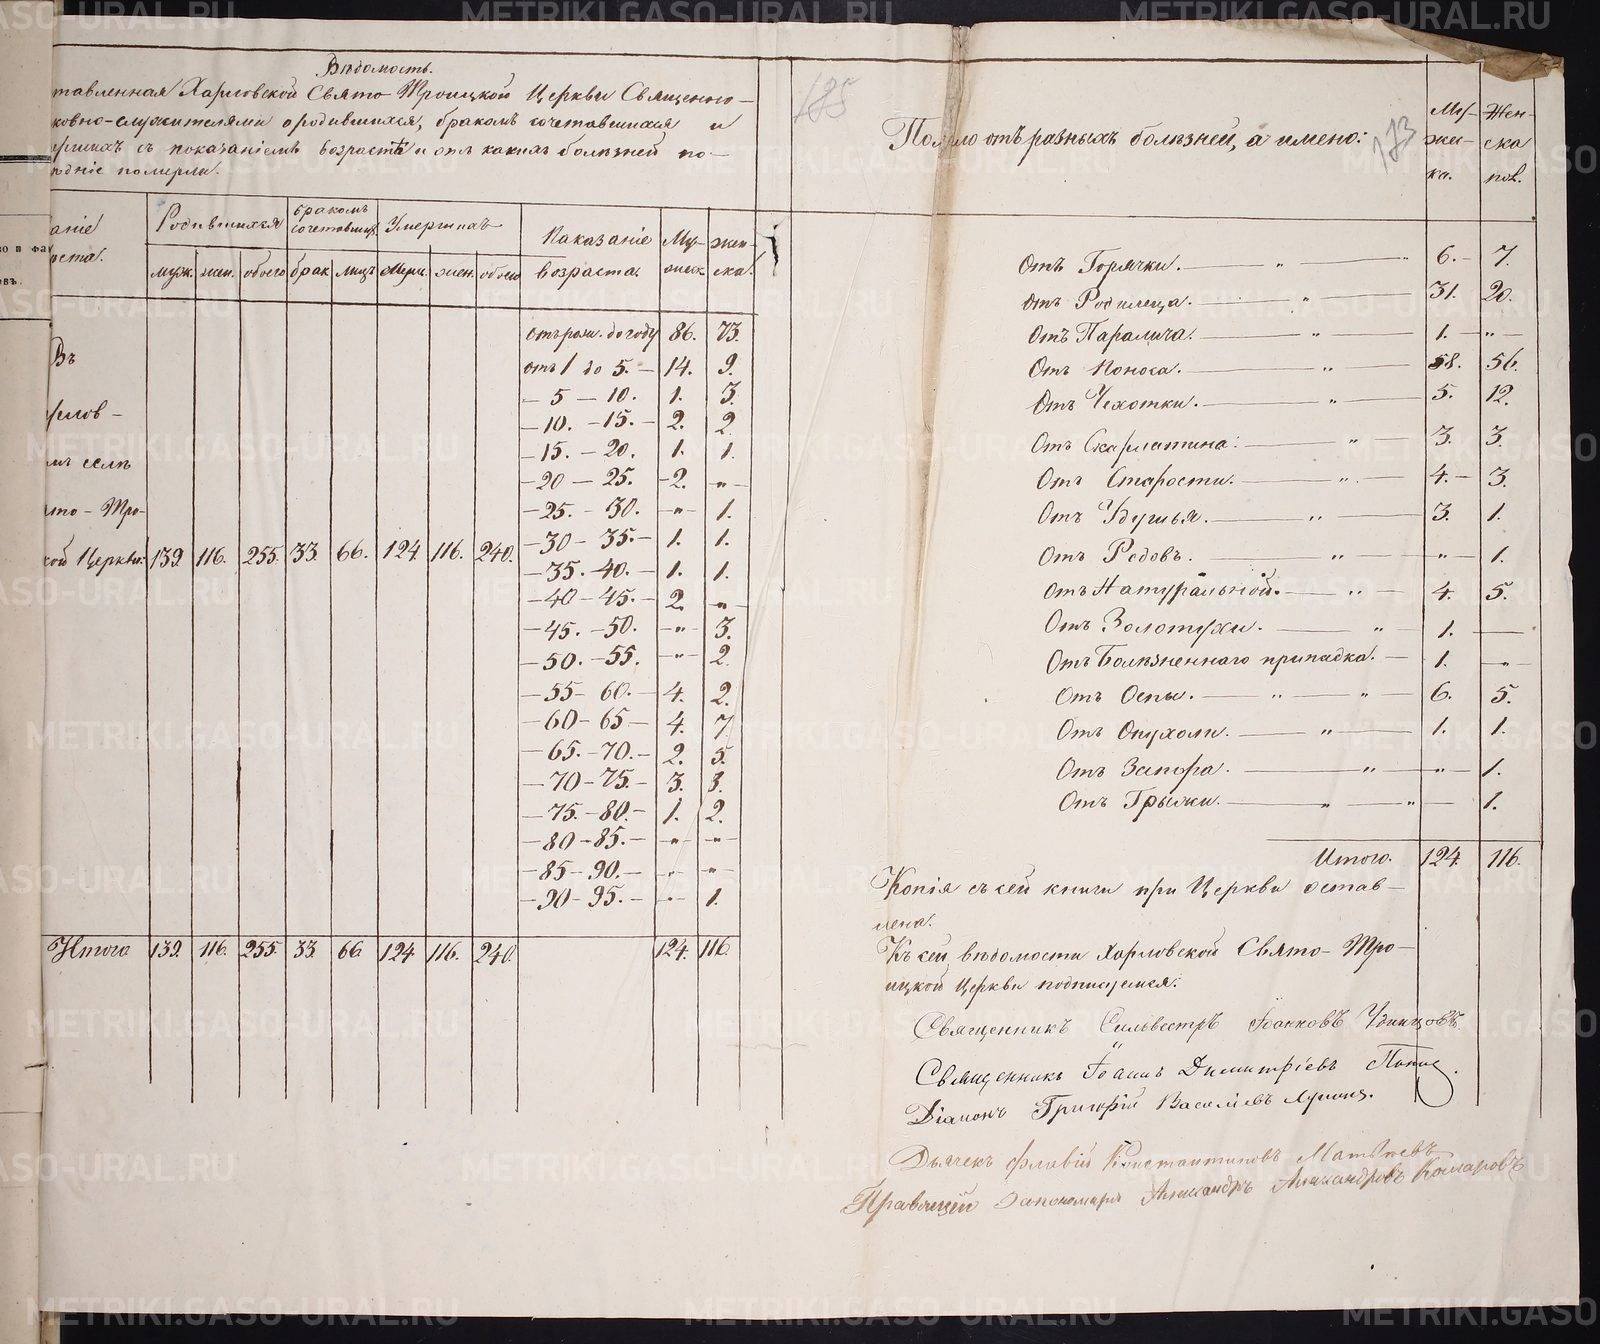 Вѣдомость.
ставленная Харловской Свято-Троицкой Церкви Священно-
ковно-служителями о родившихся, бракомъ сочетавшихся и
съ показаніемъ возраста и отъ какихъ болѣзней по-
родніе померли.
аніе
Родившихся
бракомъ сочетавших.
Умершихъ
Показаніе возраста.
Му- жеск.
жен- ска.
муж. жен. обоего брак лицъ жен. обоего
Въ
села
Тро-
кой Церкви. 139. 116. 255. 33. 66. 124. 116. 240.
отъ рож. до году 86. 73.
отъ 1 до 5. – 14. 9.
– 5 – 10. 1. 3.
– 10. – 15. – 2. 2.
– 15. – 20. 1. 1.
– 20 – 25. – 2. „ –
– 25. – 30. – „ – 1.
– 30 – 35. – 1. 1.
– 35. – 40. – 1. 1.
– 40 – 45. – 2. „ –
– 45. – 50. – „ – 3.
– 50. – 55. – „ – 2.
– 55 – 60. – 4. 2.
– 60 – 65 – 4. 7
– 65. – 70. – 2. 5.
– 70 – 75. – 3. 3.
– 75. – 80. – 1. 2.
– 80 – 85. – „ – „ –
– 85 – 90. – „ – „ –
– 90 – 95. – „ – 1.
Итого 139. 116. 255. 33. 66 124 116. 240. 124. 116.
185
173
Померло отъ разныхъ болѣзней, а имено:
Му- жи- ка.
Жен- ска пол.
Отъ Горячки. 6. – 7.
Отъ Родимца. 31. 20.
Отъ Паралича. 1. – „ –
Отъ Поноса. 58. 56.
Отъ Чехотки. 5. 12.
Отъ Скарлатина: 3. 3.
Отъ Старости. 4. – 3.
Отъ Удушья. 3. 1.
Отъ Родовъ. – „ – 1.
Отъ Натуральной. 4. 5.
Отъ Золотухи. 1. –
Отъ Болѣзненнаго припадка. – 1. – „ –
Отъ Оспы. 6. 5.
Отъ Опухоли. 1. 1.
Отъ Запора. – „ – 1.
Отъ Грыжи. – „ – 1.
Итого. 124. 116.
Копія съ сей книги при Церкви остав-
лена.
Къ сей вѣдомости Харловской Свято-Тро-
ицкой Церкви подписуемся:
Священникъ Сильвестръ Іоанновъ Удинцовъ
Священникъ Іоаннъ Димитріевъ Попов.
Діаконъ Григорій Василіевъ
Дьячекъ Флавій Константиновъ Матвѣевъ
Правящій Александръ Александровъ Комаровъ
METRIKI.GASO-URAL.RU